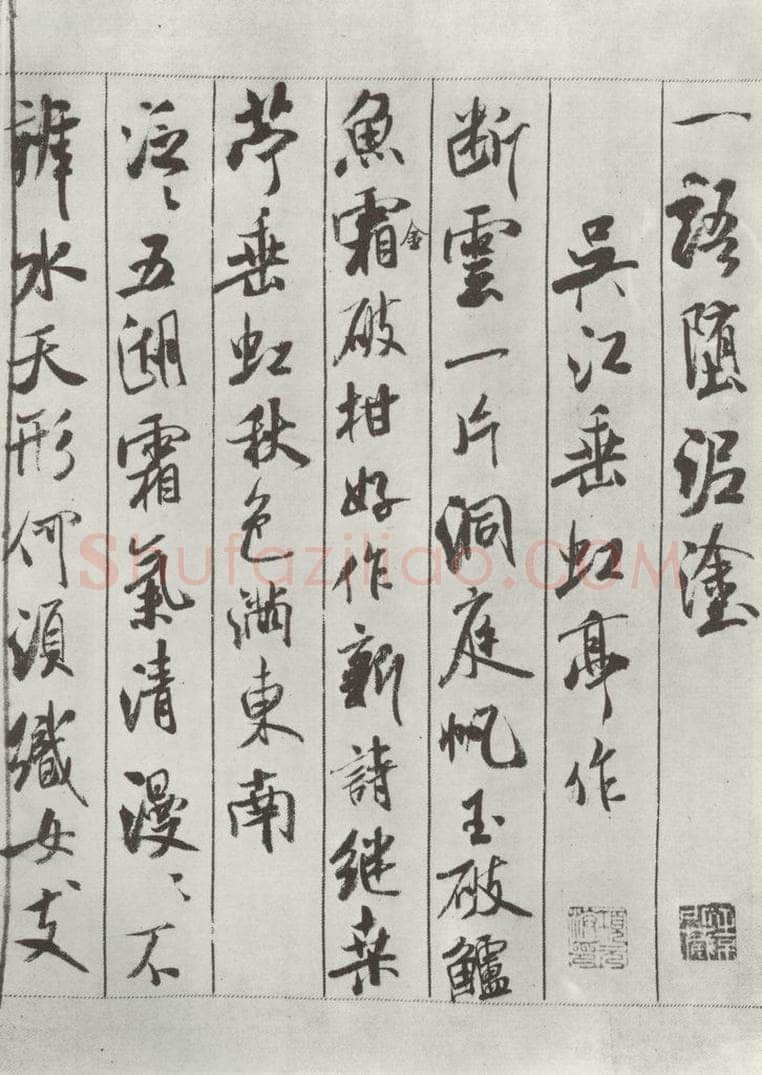 一語墮泥塗
吳江垂虹亭作
断雲一片洞庭帆玉破鱸
魚霜金破柑好作新詩継桑
苧垂虹秋色滿東南
泛〻五湖霜氣清漫〻不
辨水天形何須織女支
Shufaziliao.COM